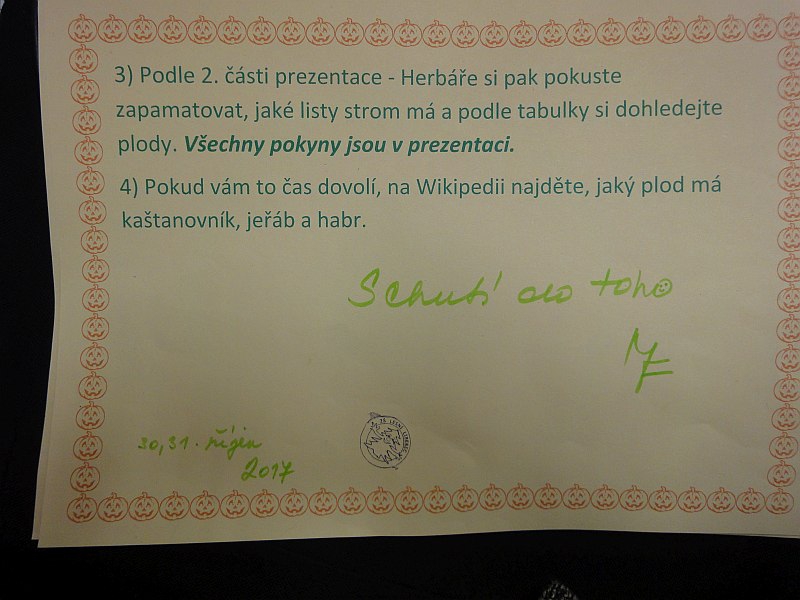 3) Podle 2. části prezentace - Herbáře si pak pokuste
zapamatovat, jaké listy strom má a podle tabulky si dohledejte
plody. Všechny pokyny jsou v prezentaci.
4) Pokud vám to čas dovolí, na Wikipedii najděte, jaký plod má
kaštanovník, jeřáb a habr.
S chutí do toho
MF
30, 31. říjen
2017